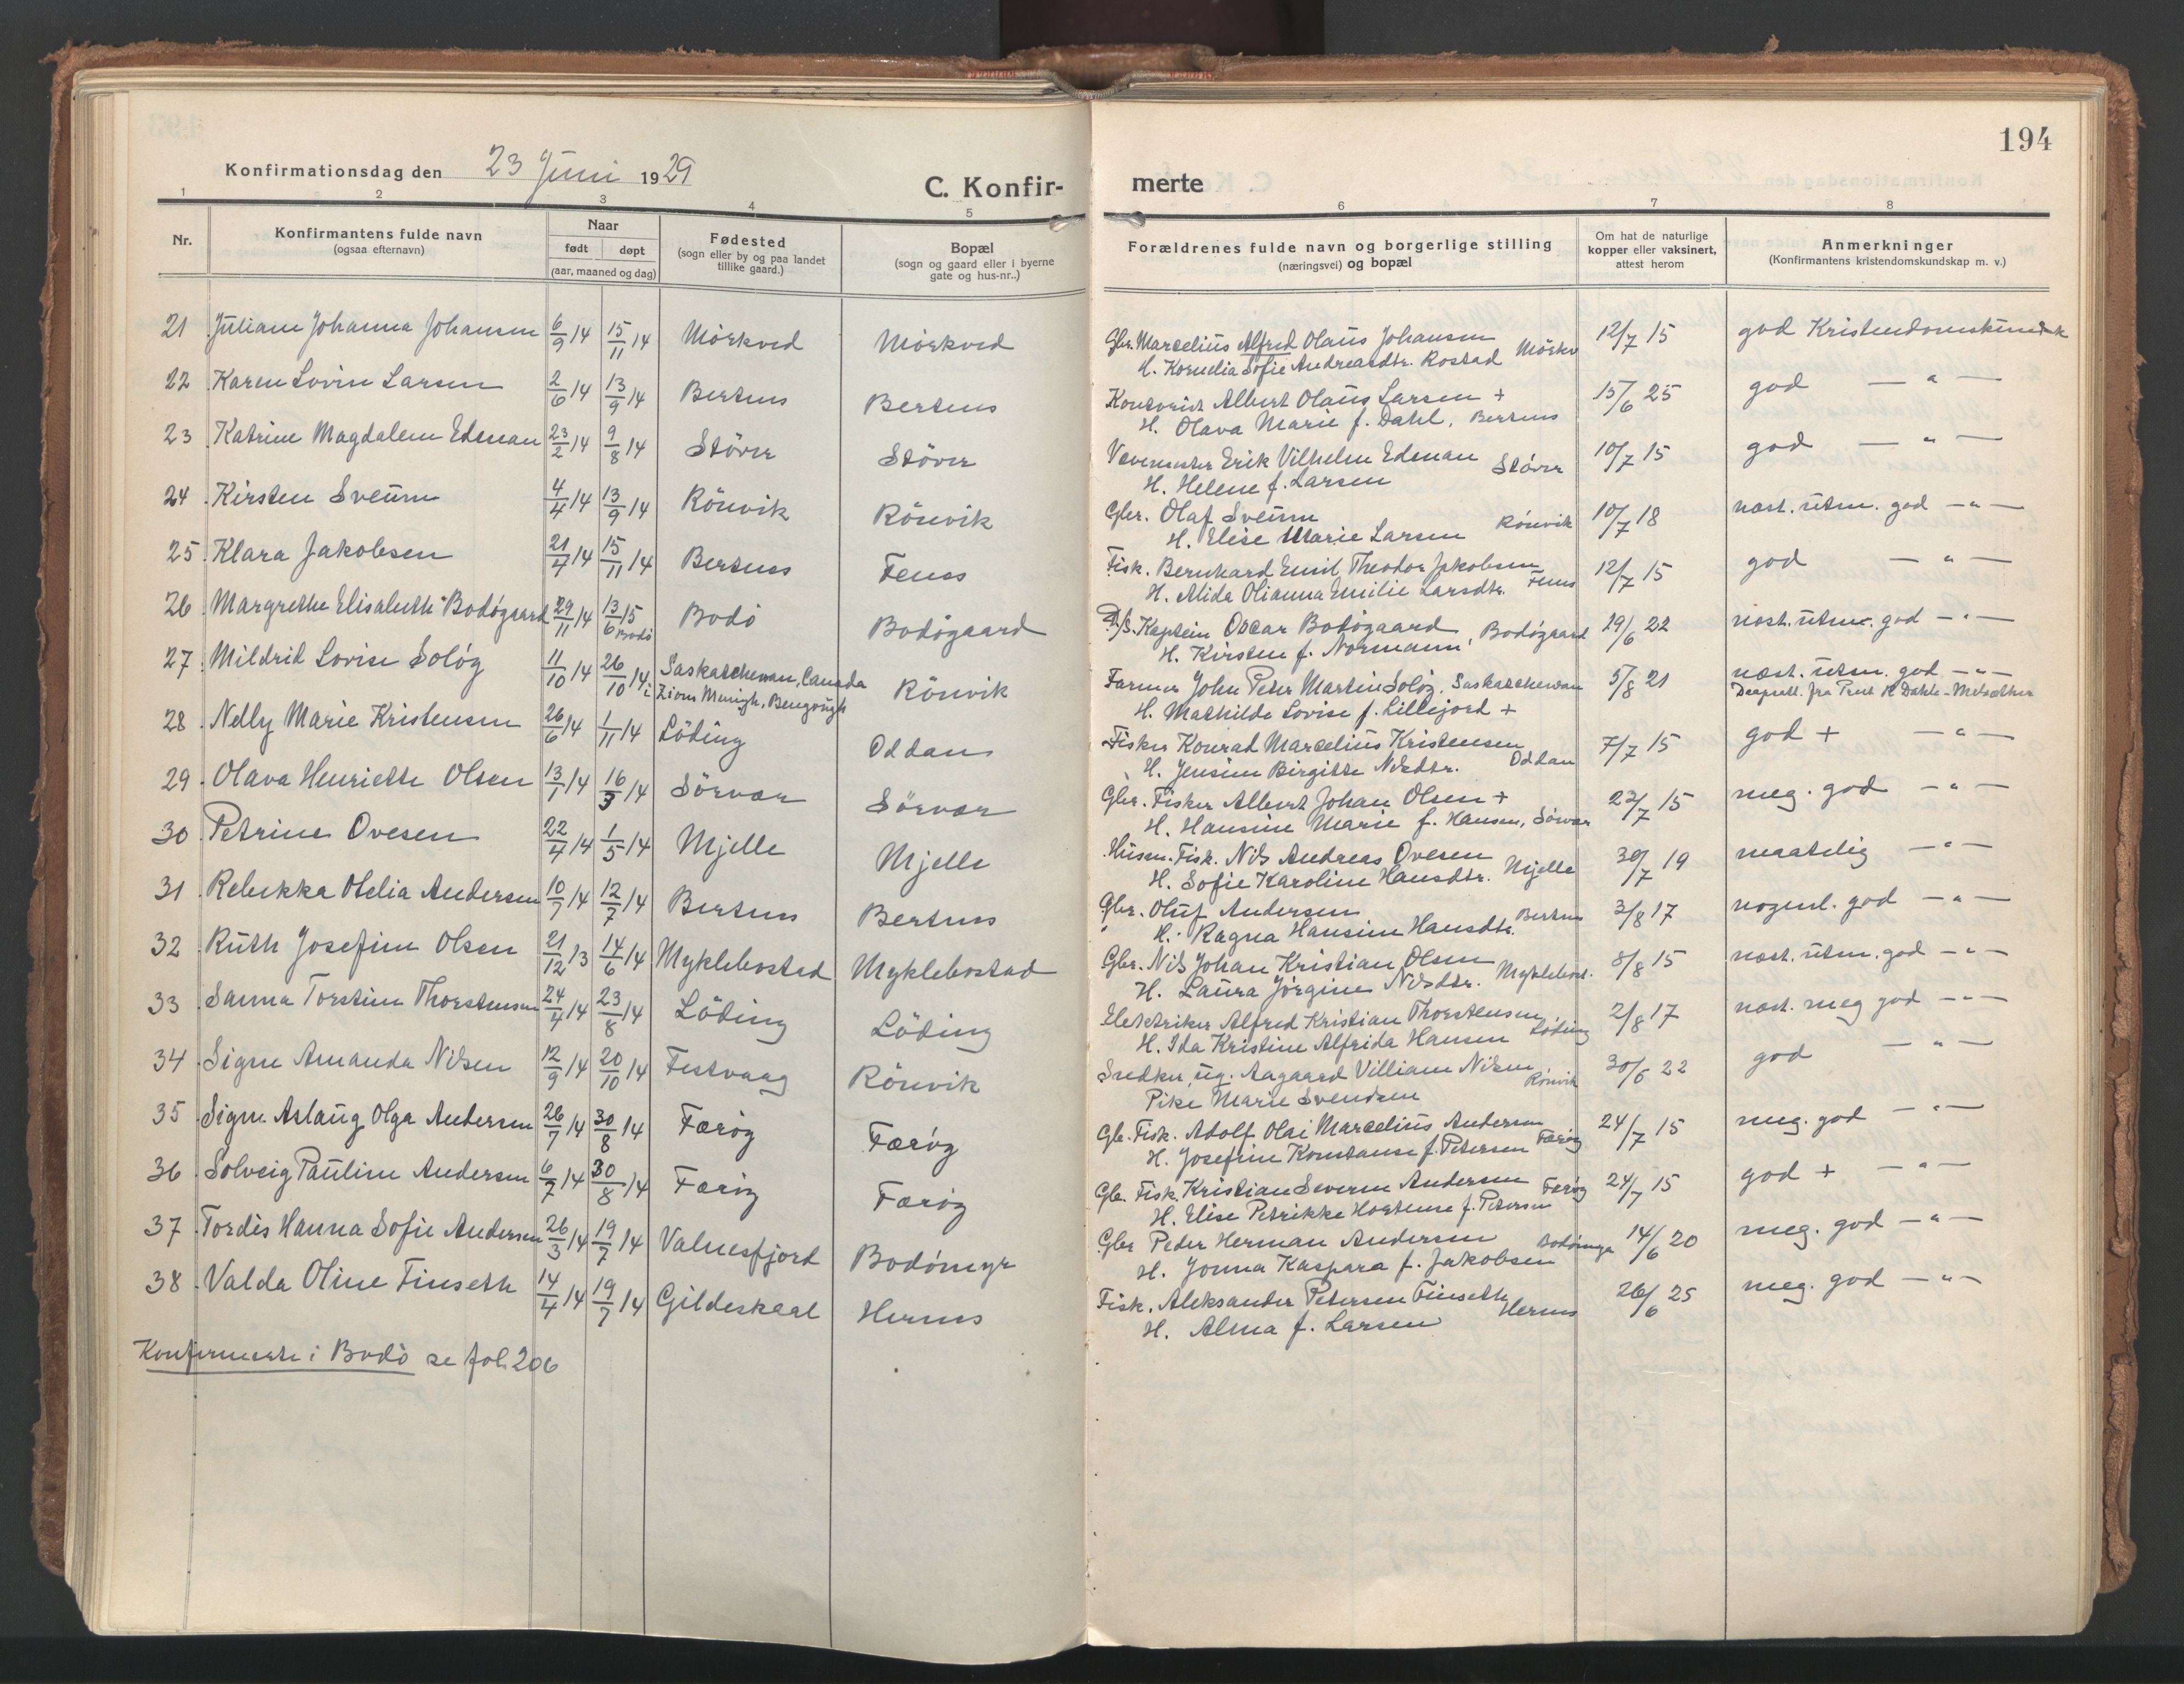 194
Konfirmationsdag den 23 Juni 1929
C. Konfir- merte
1 2 3 4 5 6 7 8
Nr.
Konfirmantens fulde navn
(ogsaa efternavn)
Naar
født døpt
(aar, maaned og dag)
Fødested
(sogn eller by og paa landet
tillike gaard.)
Bopæl
(sogn og gaard eller i byerne
gate og hus-nr..)
Forældrenes fulde navn og borgerlige stilling
(næringsvei) og bopæl
Om hat de naturlige
kopper eller vaksinert,
attest herom
Anmerkninger
(Konfirmantens kristendomskundskap m. v.)
21 Juliane Johanna Johansen 6/9 14 15/11 14 Mörkved Mörkved Gbr. Marcelius Alfred Olaus Johansen 12/7 15 god Kristendomskundsk
H. Kornelia Sofie Andreasdtr. Rostad Mörkv
22 Karen Lovise Larsen 2/6 14 13/9 14 Bertnes Bertnes Kontorist Albert Olaus Larsen + 15/6 25 god — " —
H. Olava Marie f. Dahl, Bertnes
23 Katrine Magdalene Edman 23/2 14 9/8 14 Støver Støver Vævemester Erik Vilhelm Edman Støver 10/7 15 god — " —
H. Helene f. Larsen
24 Kirsten Sveum 4/4 14 13/9 14 Rönvik Rönvik Gbr. Olaf Sveum Rönvik 10/7 18 næst. utm. god — " —
H. Elise Marie Larsen
25 Klara Jakobsen 21/7 14 15/11 14 Bertnes Fenes Fisk. Bernhard Emil Theodor Jakobsen 12/7 15 god — " —
H. Alida Olianna Emilie Larsdtr. Fenes
26 Margrethe Elisabeth Bodøgaard 29/11 14 13/6 15 Bodø Bodø Bodøgaard D/S. Kaptein Oscar Bodøgaard 29/6 22 næst. utm. god — " —
H. Kirsten f. Normann, Bodøgaard
27 Mildrid Lovise Soløy 11/10 14 26/10 14 Saskatchewan, Canada Rönvik Farmer John Peter Martin Soløy. Saskatchewan 5/8 21 næst. utm. god — " —
i Zions Menigh., Bengough H. Mathilde Lovise f. Lillejord +
28 Nelly Marie Kristensen 26/6 14 1/11 14 Löding Oddan Fisker Konrad Marcelius Kristensen 7/7 15 god + — " —
H. Jensine Birgitte Nilsdtr. Oddan
29 Olava Henriette Olsen 13/1 14 16/3 14 Sörvær Sörvær Gbr. Fisker Albert Johan Olsen + 22/7 15 meg. god — " —
H. Hansine Marie f. Hansen, Sörvær
30 Petrine Ovesen 22/4 14 1/5 14 Mjelle Mjelle Husm. Fisk. Nils Andreas Ovesen 30/7 19 maatelig — " —
H. Sofie Karoline Hansdtr. Mjelle
31 Rebekka Otelia Andersen 10/7 14 12/7 14 Bertnes Bertnes Gbr. Oluf Andersen Bertnes 3/8 17 nogenl. god — " —
H. Ragna Hansine Hansdtr.
32 Ruth Josefine Olsen 21/12 13 14/6 14 Myklebostad Myklebostad Gbr. Nils Johan Kristian Olsen 8/8 15 næst. utm. god — " —
H. Laura Jörgine Nilsdtr. Myklebost.
33 Sanna Torstine Thorstensen 24/4 14 23/8 14 Löding Löding Elektriker Alfred Kristian Thorstensen 2/8 17 næst. meg god — " —
H. Ida Kristine Alfrida Hansen Löding
34 Signe Amanda Nilsen 12/9 14 20/10 14 Festvaag Rönvik Snedker, ug. Aagaard Villiam Nilsen Rönvik 30/6 22 god — " —
Pike Marie Svendsen
35 Signe Aslaug Olga Andersen 26/7 14 30/8 14 Færøy Færøy Gb. Fisk. Adolf Olai Marcelius Andersen 24/7 15 meg. god — " —
H. Josefine Konstanse f. Petersen Færøy
36 Solveig Pauline Andersen 6/7 14 30/8 14 Færøy Færøy Gb. Fisk. Kristian Severin Andersen Færøy 24/7 15 god + — " —
H. Elise Petrikke Hortense f. Petersen
37 Tordis Hanna Sofie Andersen 26/3 14 19/7 14 Valnesfjord Bodömyr Gbr Peder Herman Andersen Bodömyr 14/6 20 meg. god — " —
H. Jonna Kaspara f. Jakobsen
38 Valda Oline Finseth 14/4 14 19/7 14 Gildeskaal Hernes Fisk. Aleksander Petersen Finseth 26/6 25 meg. god — " —
H. Alma f. Larsen Hernes
Konfirmerte i Bodö se fol. 206